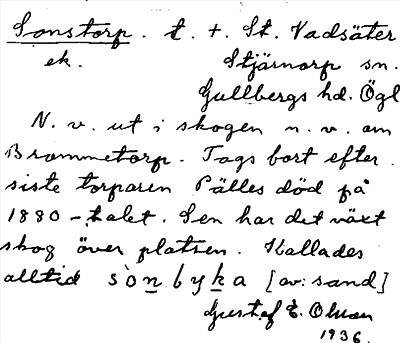 Sonstorp. t. + . St. Vadsäter
ek. Stjärnorp sn.
Gullbergs hd. Ögl
N. v. ut i skogen n. v. om
Brommetorp. Togs bort efter
siste torparen Pälles död på
1880-talet. Sen har det växt
skog över platsen. Kallades
alltid sònbyka [av: sand]
Gustaf E. Olsson
1936.